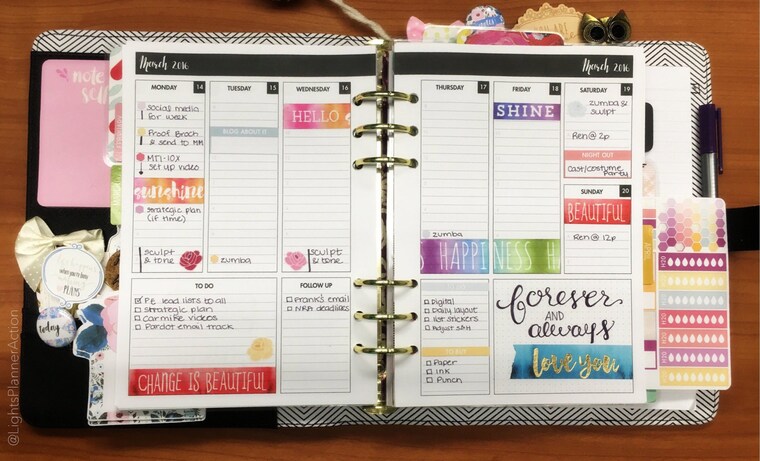 note
self
March 2016
MONDAY 14
social media
for week
Proof Broch
& send to MM
MTI-10X
set up video
sunshine
strategic plan
(if time)
sculpt
& tone
TUESDAY 15
BLOG ABOUT IT
zumba
WEDNESDAY 16
HELLO
sculpt
& tone
TO DO
P.E. lead lists to all
strategic plan
Carmike videos
Pardot email track
CHANGE IS BEAUTIFUL
FOLLOW UP
Frank's email
NRA deadlines
March 2016
THURSDAY 17
zumba
FRIDAY 18
SHINE
HAPPINESS
SATURDAY 19
zumba &
sculpt
Ren @ 2p
NIGHT OUT
Cast/costume
Party
SUNDAY 20
BEAUTIFUL
Ren @ 12p
Digital
Daily layout
list stickers
Adjust S&H
Paper
Ink
Punch
forever
AND
always
love you
today
PLANS
H2O
H2O
H2O
H2O
H2O
@LightsPlannerAction